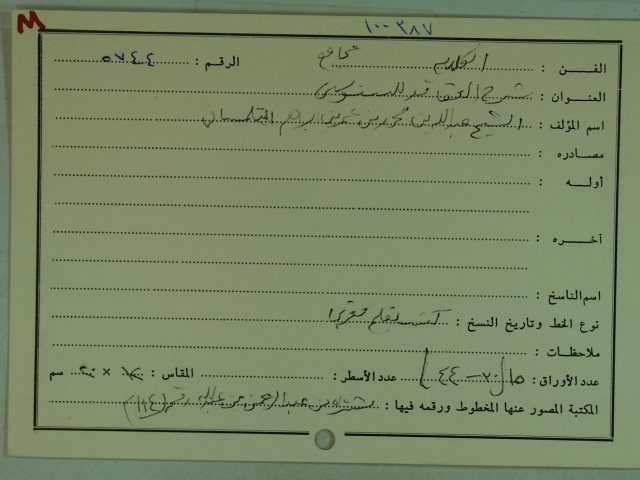 M
١٠٠٣٨٧
الفن : الكلام مجاميع الرقم : ٥٧٤٤
العنوان : شرح العقائد للسنوسي
اسم المؤلف : الشيخ عبدالله بن محمد بن بن إبراهيم التلمساني
مصادره :
أوله :
آخره :
اسم الناسخ :
نوع الخط وتاريخ النسخ : كتب بقلم مغربي
ملاحظات :
عدد الأوراق : ١٥ (٣٠ - ٤٤) عدد الأسطر : المقاس : × ٢٠ سم
المكتبة المصور عنها المخطوط ورقمه فيها : عبد الرحمن بن عبدالله رقم